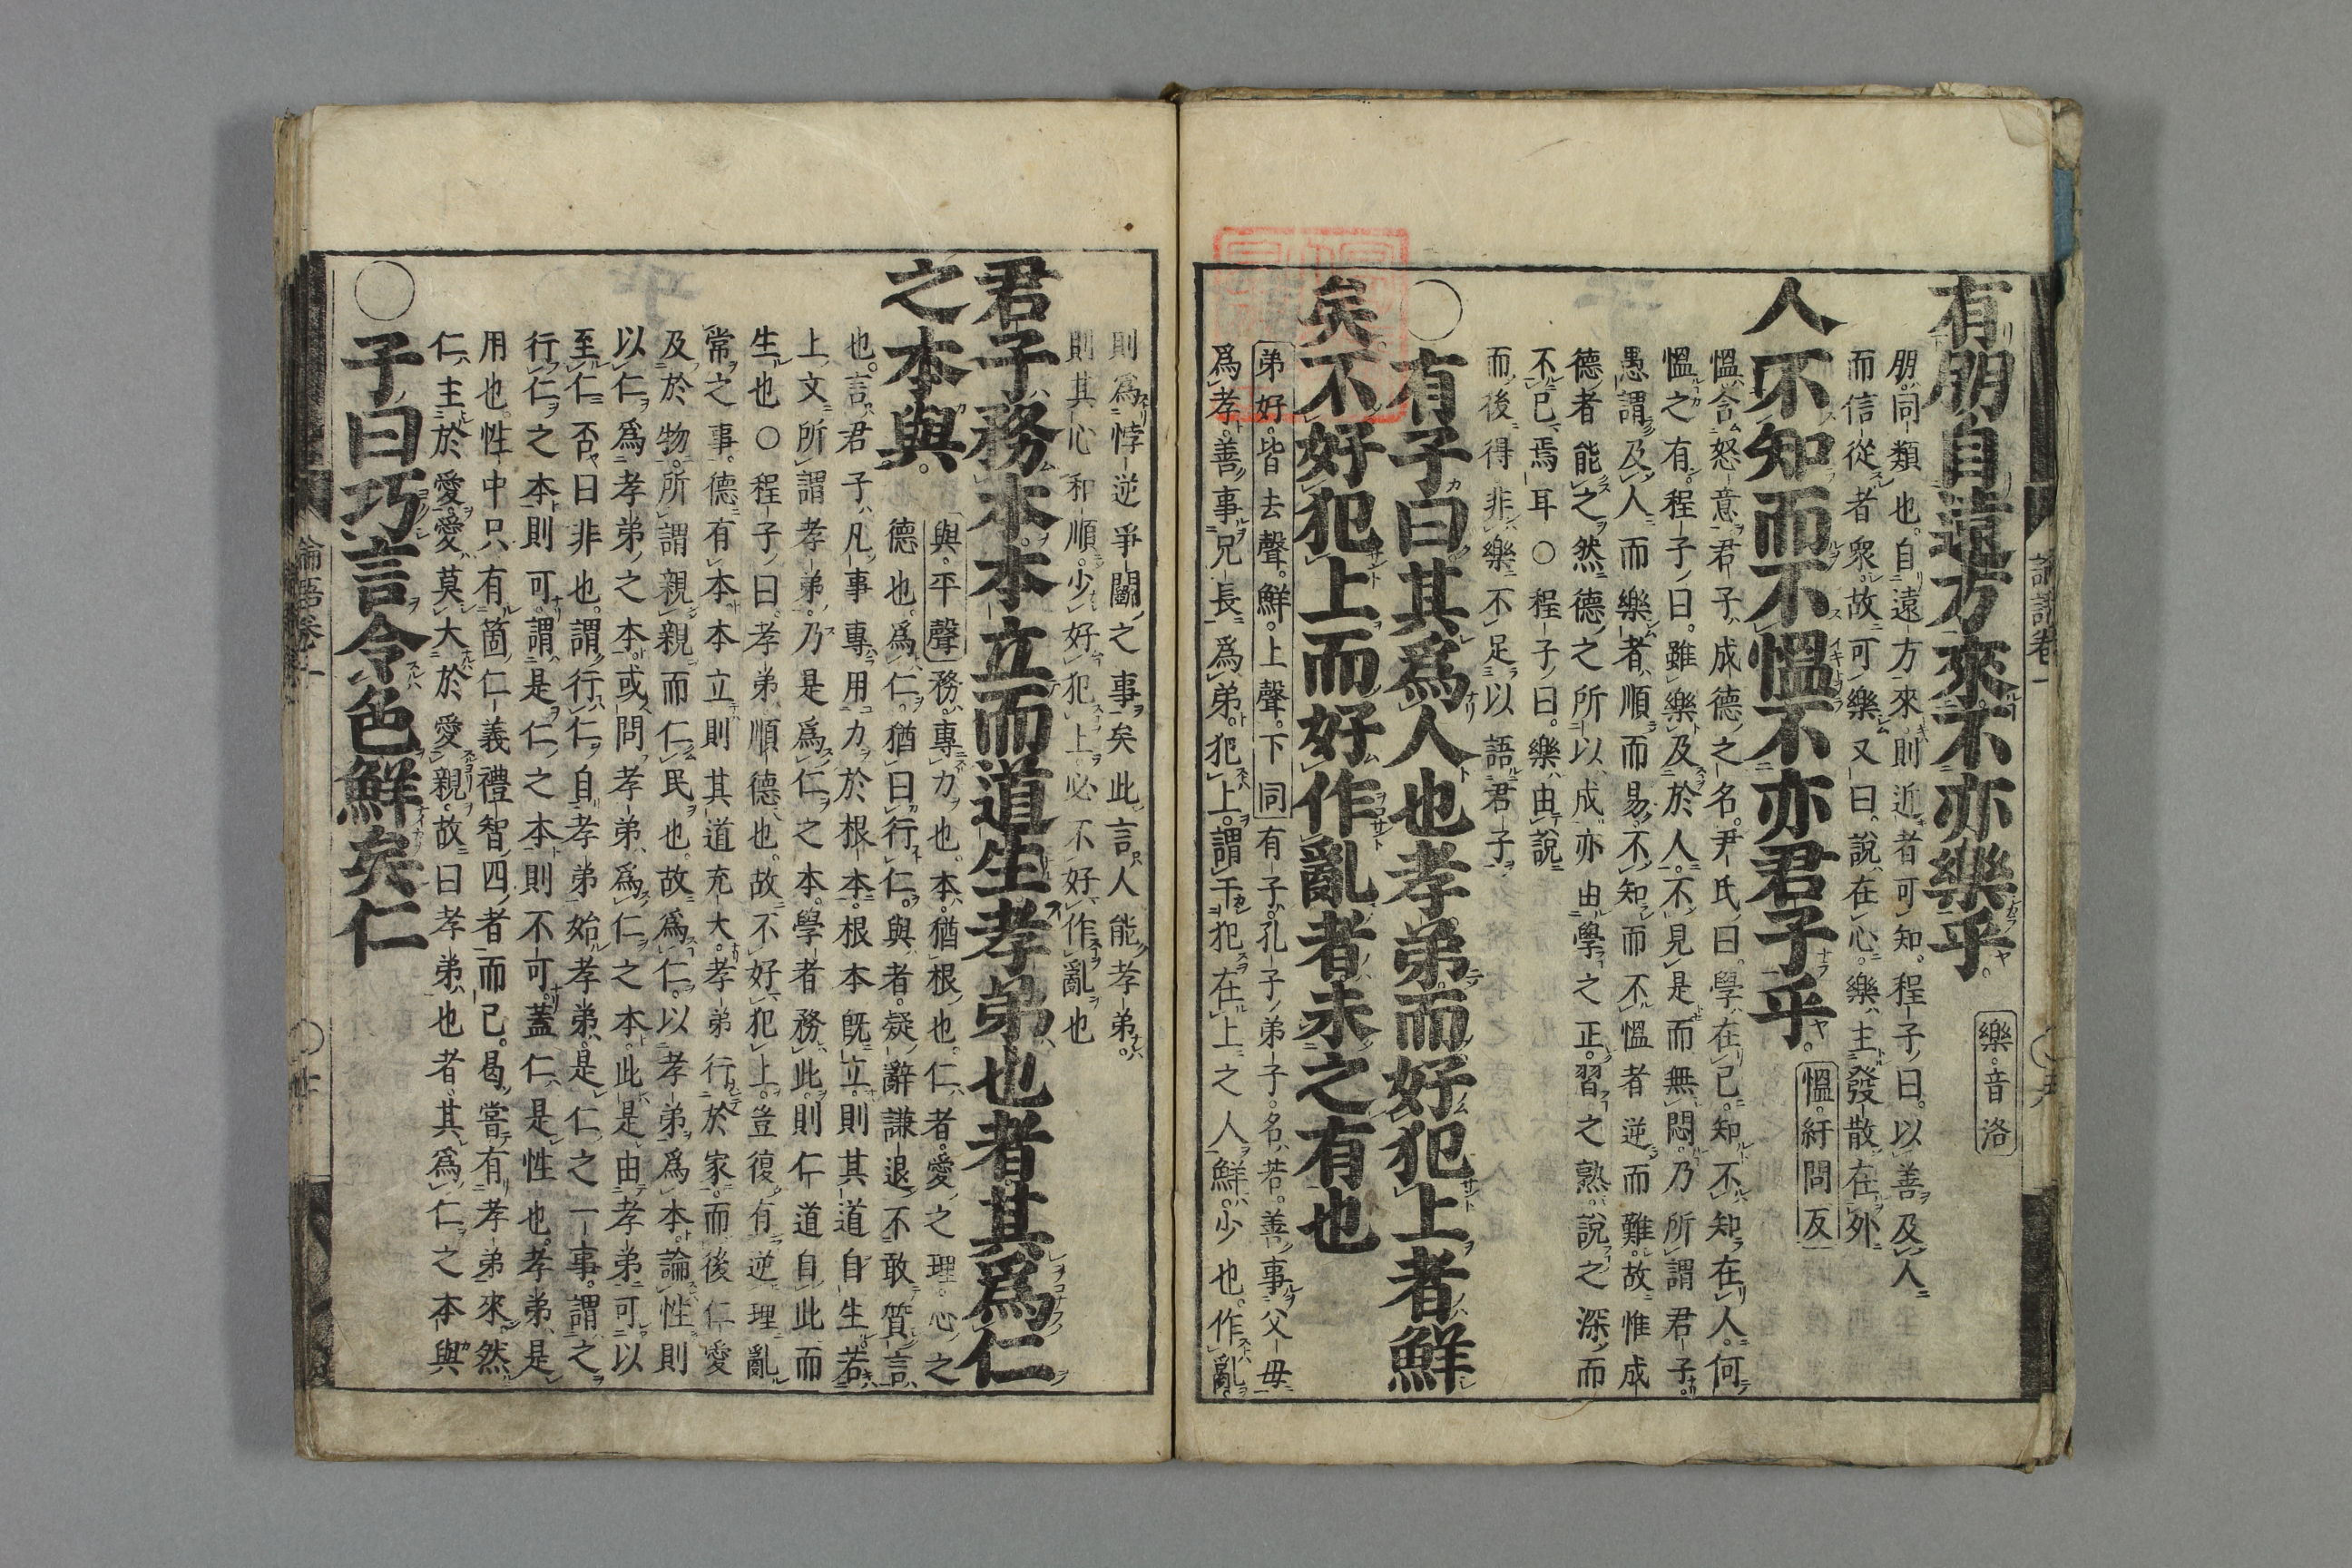 有朋自遠方來不亦樂乎。樂。音洛
朋。同類也。自遠方來。則近者可知。程子曰。以善及人
而信從者衆。故可樂又曰。說在心。樂主發散在外
人不知而不慍不亦君子乎。慍。紆問反
慍含怒意君子成德之名。尹氏曰。學在己。知不知在人。何
慍之有。程子曰。雖樂及於人。不見是而無悶。乃所謂君子。
愚謂及人而樂者順而易。不知而不慍者逆而難。故惟成
德者能之然德之所以成亦由學之正。習之熟。說之深而
不已焉耳○程子曰。樂由說
而後得非樂不足以語君子
○有子曰其爲人也孝弟而好犯上者鮮
矣。不好犯上而好作亂者未之有也
弟好。皆去聲。鮮。上聲。下同有子。孔子弟子。名若。善事父母
爲孝。善事兄長爲弟。犯上。謂干犯在上之人鮮。少也。作亂。
則爲悖逆爭鬭之事矣此言人能孝弟。
則其心和順。少好犯上。必不好作亂也
君子務本。本立而道生孝弟也者。其爲仁
之本與。
與。平聲務。專力也。本。猶根也。仁者。愛之理。心之
德也。爲仁。猶曰行仁。與者。疑辭謙退不敢質言
也。言君子凡事專用力於根本。根本既立。則其道自生。若
上文所謂孝弟。乃是爲仁之本。學者務此。則仁道自此而
生也○程子曰。孝弟順德也。故不好犯上。豈復有逆理亂
常之事。德有本本立則其道充大。孝弟行於家。而後仁愛
及於物。所謂親親而仁民也。故爲仁。以孝弟爲本。論性則
以仁爲孝弟之本。或問孝弟爲仁之本。此是由孝弟可以
至仁否曰非也。謂行仁自孝弟始孝弟。是仁之一事。謂之
行仁之本則可。謂是仁之本則不可。蓋仁是性也。孝弟是
用也。性中只有箇仁義禮智四者而已。曷嘗有孝弟來。然
仁主於愛。愛莫大於愛親。故曰孝弟也者。其爲仁之本與
○子曰巧言令色鮮矣仁
論語卷一